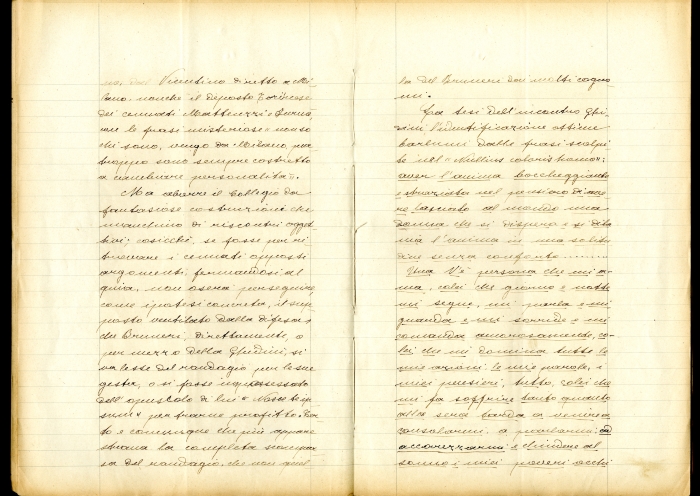 Vicentino diretto a Mi-
lano, nonché il deposto
dei cennati Matteuzzi e
re le frasi misteriose « non so
chi sono, vengo da Milano, pur
troppo sono sempre costretto
a cambiare personalità ».
Ma aborre il Collegio da
fantasiose costruzioni che
manchino di riscontri ogget
tivi; cosicché, se fosse per ri
trovare i cennati opposti
argomenti fermandosi al
quia, non oserà perseguire
come ipotesi concreta, il sup
posto ventilato dalla difesa,
che Bruneri, direttamente, o
per mezzo della Ghidini, si
valesse del randagio per le sue
gesta, o si fosse impossessato
dell'opuscolo di lui « Nosce te ip
sum » per trarne profitto.
to e comunque che più appare
strana la completa scompar
sa del randagio, che non quel
la del Bruneri dai molti cogno
mi.
La tesi dell'incontro Ghi
dini l'identificazione ottima
dalle frasi scolpi
te nel
aver l'anima boccheggiante
e straziata nel pensiero di
lasciato al mondo una
donna che si dispera e si dila
nia l'anima in una solitu
dine senza conforto..........
Una v'è persona che mi a-
ma, colei che giorno e notte
mi segue, mi parla e mi
guarda e mi sorride e mi
comanda amorosamente, co-
lei che mi domina tutte le
mie azioni, le mie parole, i
miei pensieri, tutto, colei che
mi fa soffrire tanto quando
alla sera tarda a venirmi a
consolarmi, a parlarmi ad
accarezzarmi e chiudere al
sonno i miei poveri occhi